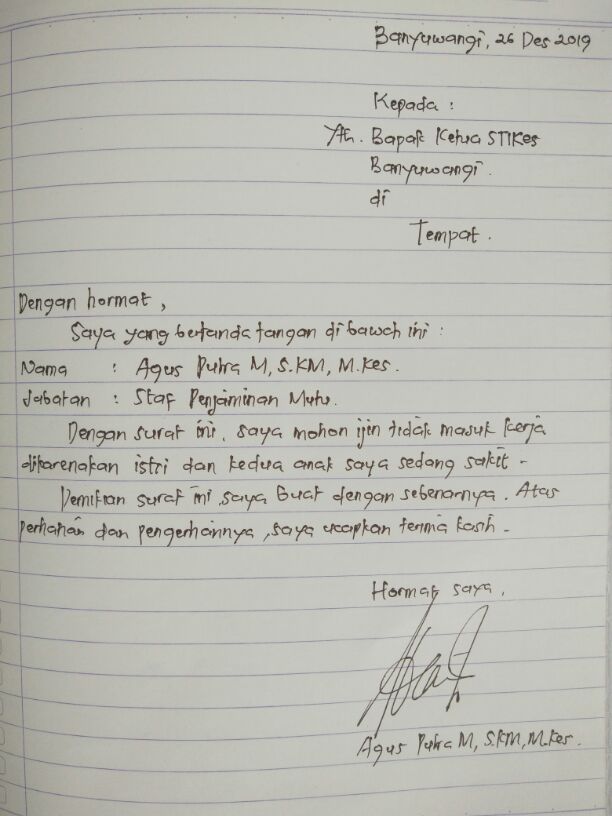 Banyuwangi, 26 Des 2019
Kepada :
Yth. Bapak Ketua STIKes
Banyuwangi.
di
Tempat.
Dengan hormat,
Saya yang bertanda tangan di bawah ini :
Nama : Agus Putra M, S.KM, M.Kes.
Jabatan : Staf Penjaminan Mutu.
Dengan surat ini, saya mohon ijin tidak masuk kerja
dikarenakan istri dan kedua anak saya sedang sakit -
Demikian surat ini, saya buat dengan sebenarnya. Atas
perhatian dan pengertiannya, saya ucapkan terima kasih -
Hormat saya,
Agus Putra M, S.KM, M.Kes.